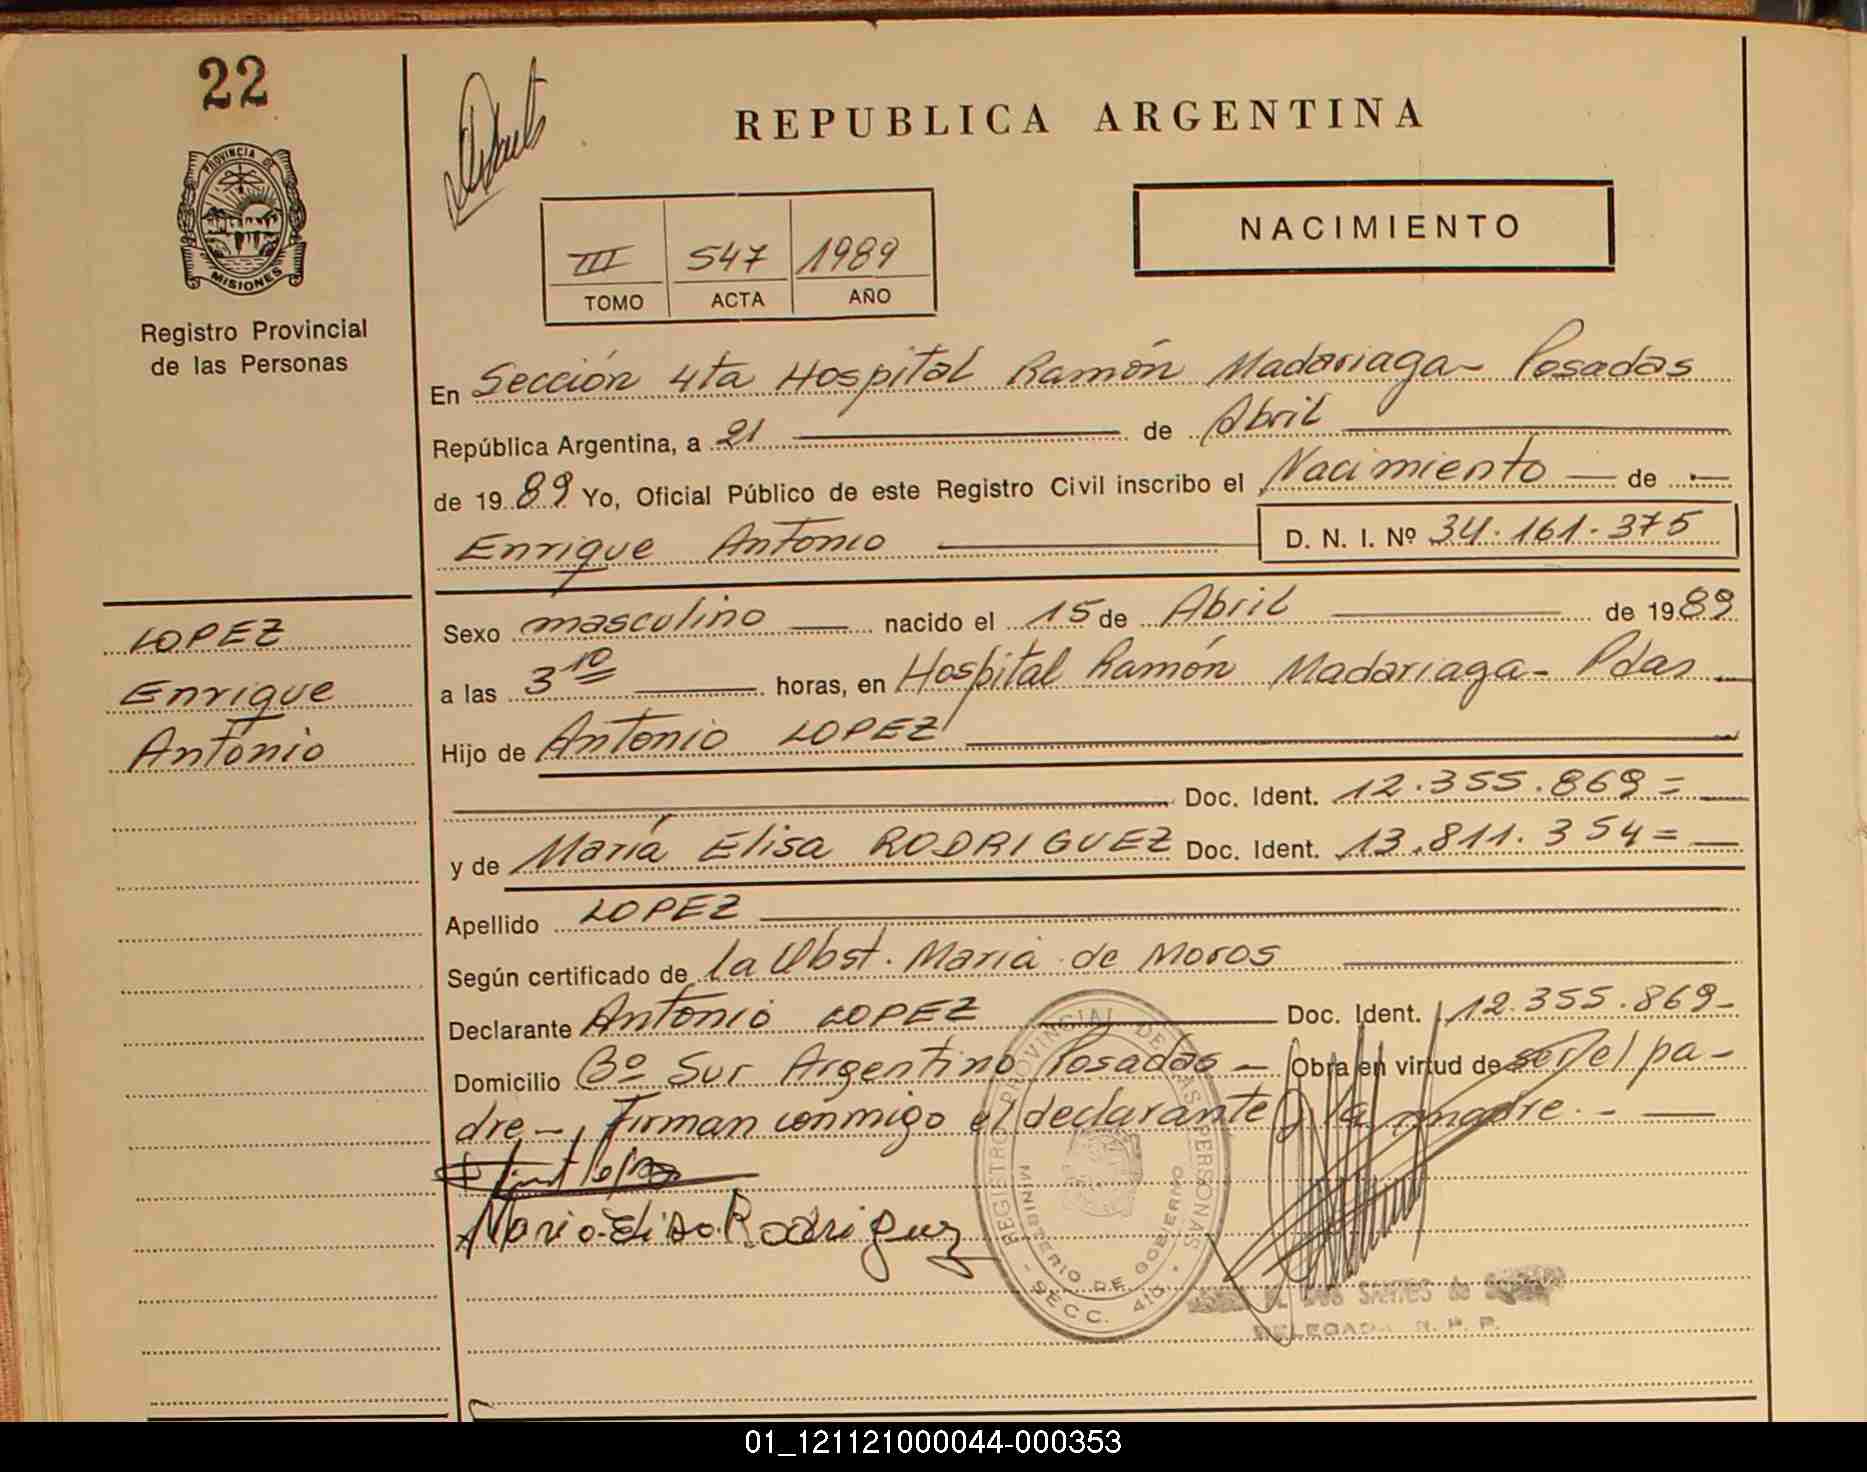 22
PROVINCIA DE
MISIONES
Registro Provincial
de las Personas
REPUBLICA ARGENTINA
NACIMIENTO
III 547 1989
TOMO ACTA AÑO
En Sección 4ta Hospital Ramón Madariaga - Posadas
República Argentina, a 21 de Abril
de 1989 Yo, Oficial Público de este Registro Civil inscribo el Nacimiento de
Enrique Antonio D. N. I. Nº 34.161.375
LOPEZ
Enrique
Antonio
Sexo masculino nacido el 15 de Abril de 1989
a las 3 10 horas, en Hospital Ramón Madariaga - Pdas
Hijo de Antonio LOPEZ
Doc. Ident. 12.355.869 =
y de María Elisa RODRIGUEZ Doc. Ident. 13.811.354 =
Apellido LOPEZ
Según certificado de la Obst. María de Moros
Declarante Antonio LOPEZ Doc. Ident. 12.355.869 -
Domicilio Bº Sur Argentino Posadas - Obra en virtud de ser el pa-
dre -, Firman conmigo el declarante y la madre. -
Maria Elisa Rodriguez
REGISTRO PROVINCIAL DE LAS PERSONAS
MINISTERIO DE GOBIERNO
SECC.
DELEGADA R. P. P.
01_121121000044-000353